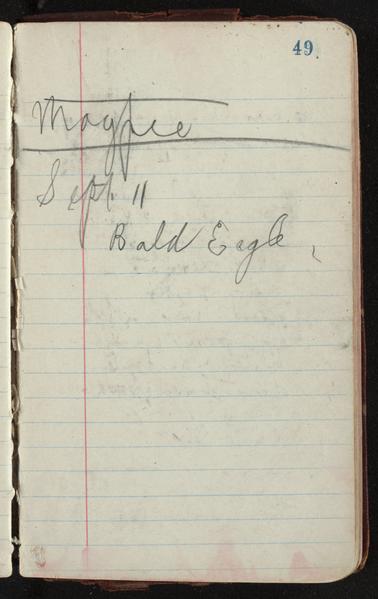 49
Magpie
Sept 11
Bald Eagle,